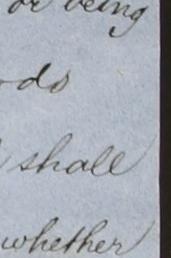 or being
do
shall
whether